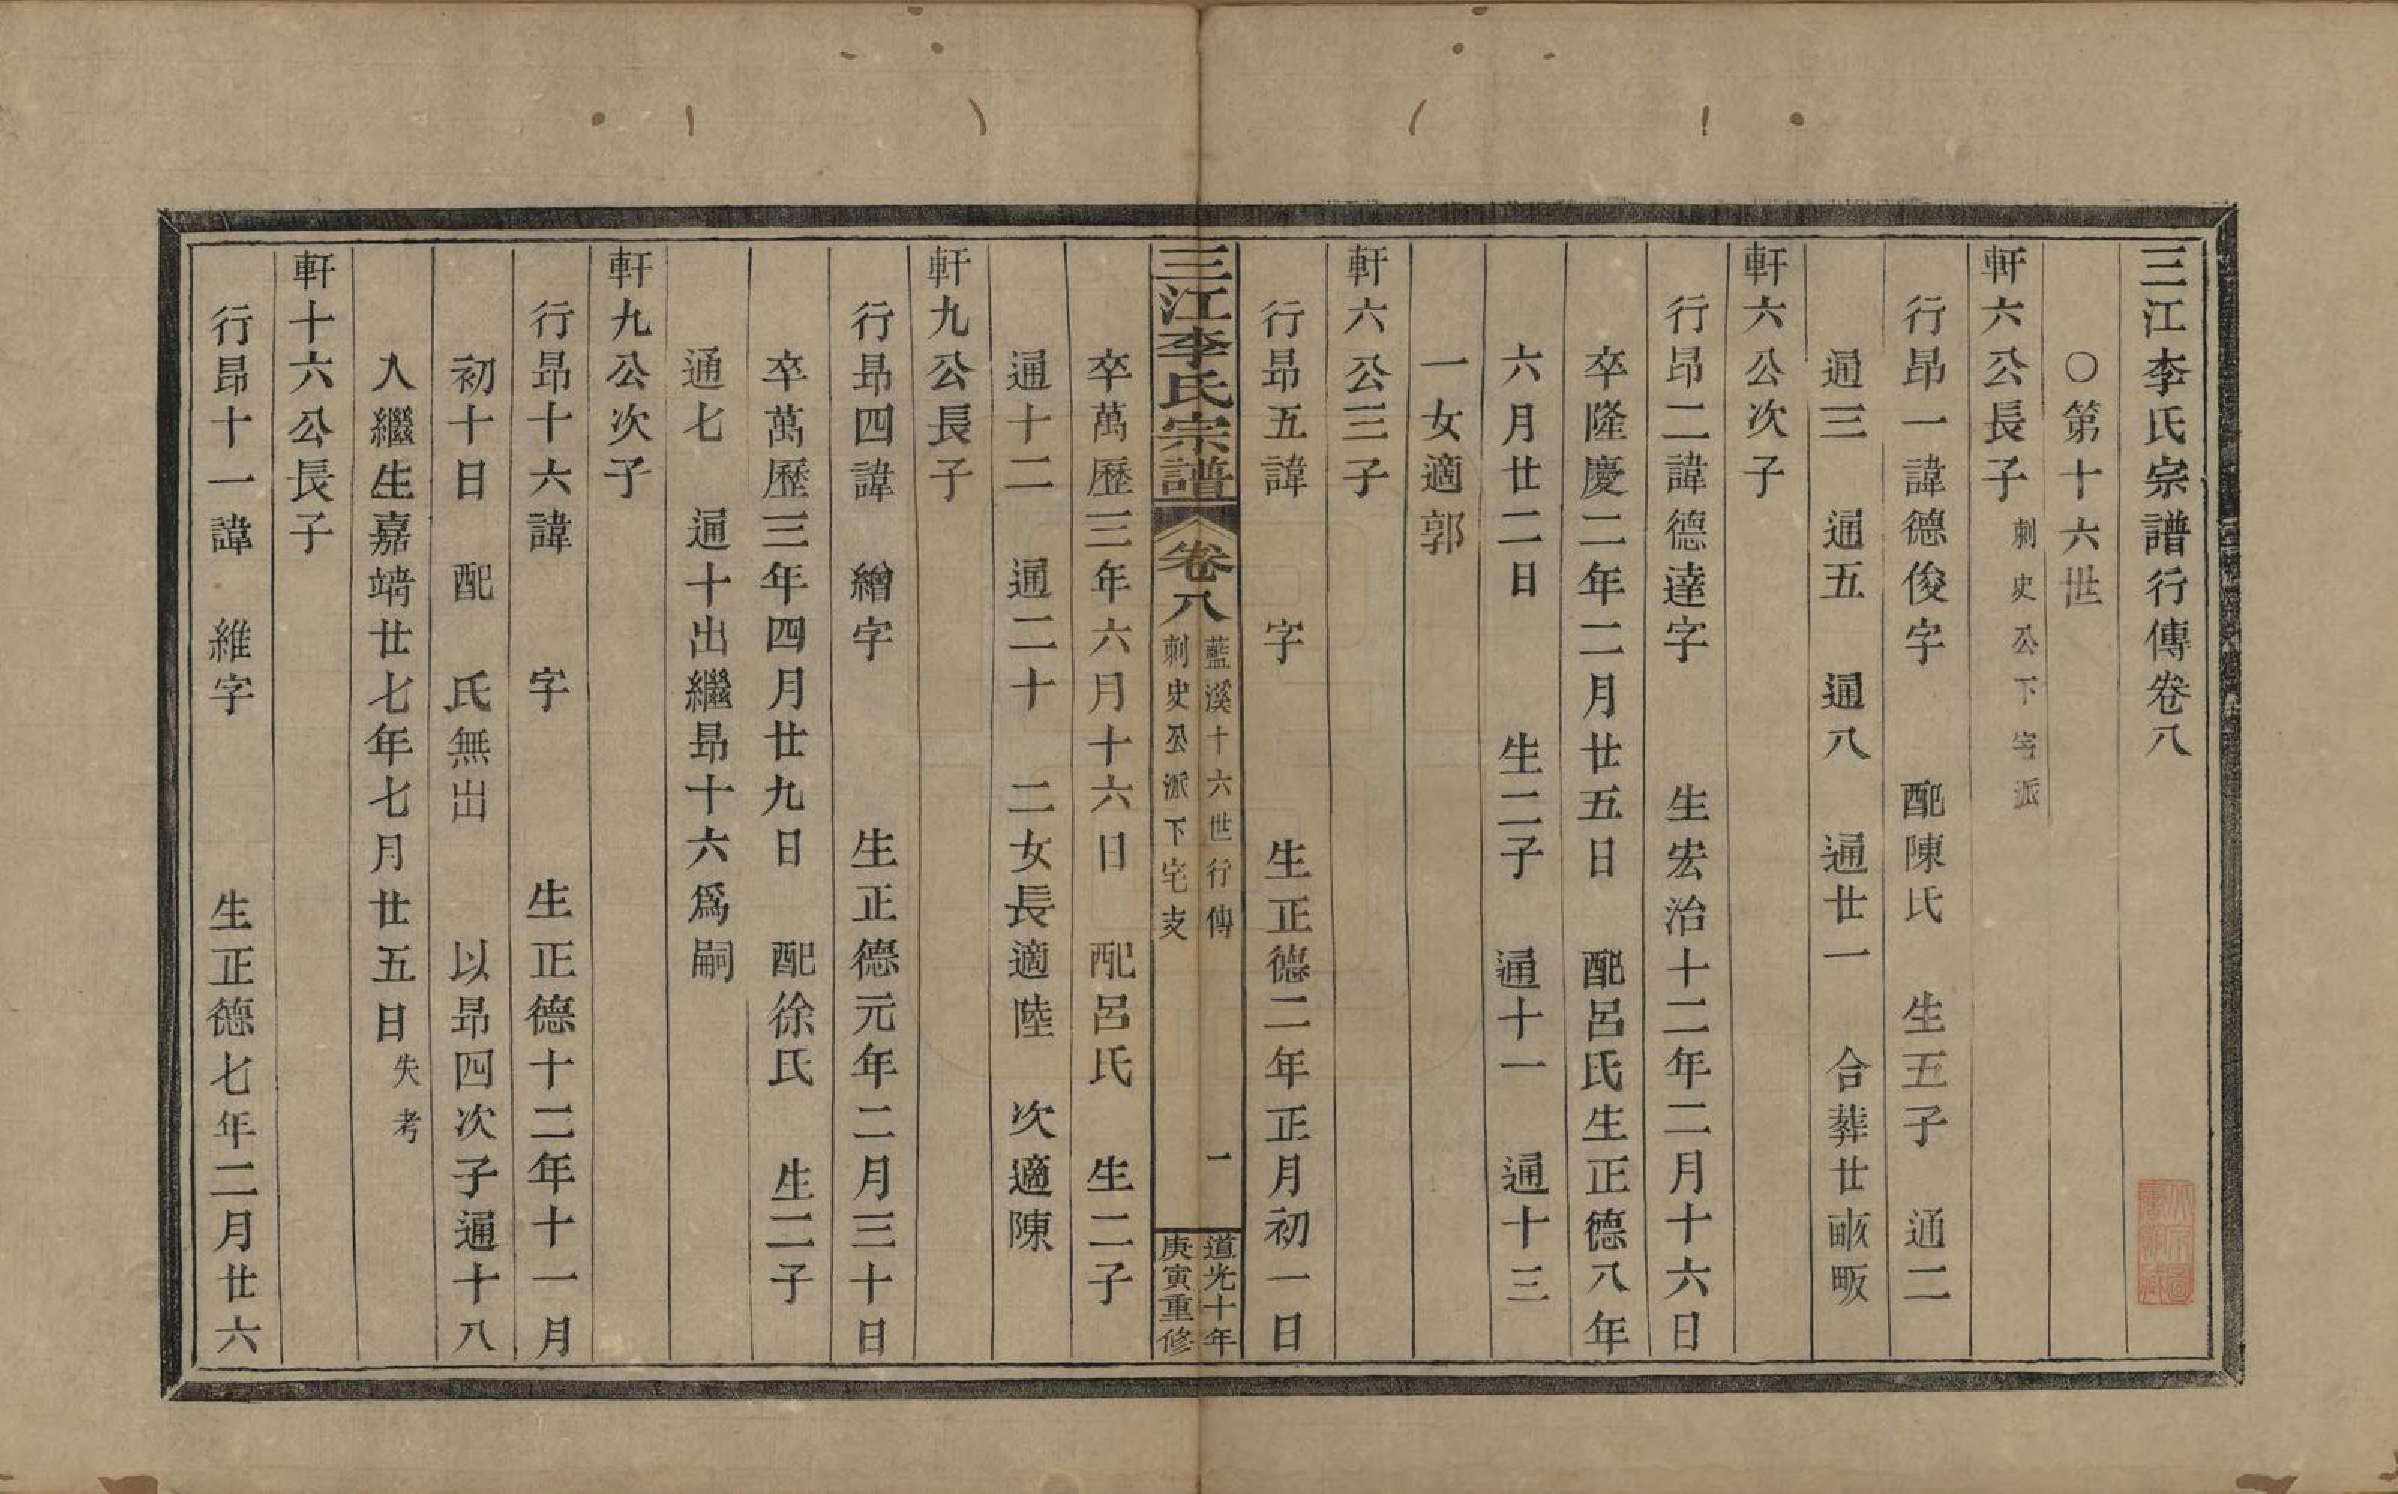 三江李氏宗譜行傳卷八
〇第十六世
軒六公長子 刺史公下宅派
行昂一諱德俊字 配陳氏 生五子 通二
通三 通五 通八 通廿一 合葬廿畝畈
軒六公次子
行昂二諱德達字 生宏治十二年二月十六日
卒隆慶二年二月廿五日 配呂氏生正德八年
六月廿二日 生二子 通十一 通十三
一女適郭
軒六公三子
行昂五諱 字 生正德二年正月初一日
三江李氏宗譜 卷八 藍溪十六世行傳 刺史公派下宅支 一 道光十年庚寅重修
卒萬歷三年六月十六日 配呂氏 生二子
通十二 通二十 二女長適陸 次適陳
軒九公長子
行昂四諱 繒字 生正德元年二月三十日
卒萬歷三年四月廿九日 配徐氏 生二子
通七 通十出繼昂十六爲嗣
軒九公次子
行昂十六諱 字 生正德十二年十一月
初十日 配 氏無出 以昂四次子通十八
入繼生嘉靖廿七年七月廿五日 失考
軒十六公長子
行昂十一諱 維字 生正德七年二月廿六